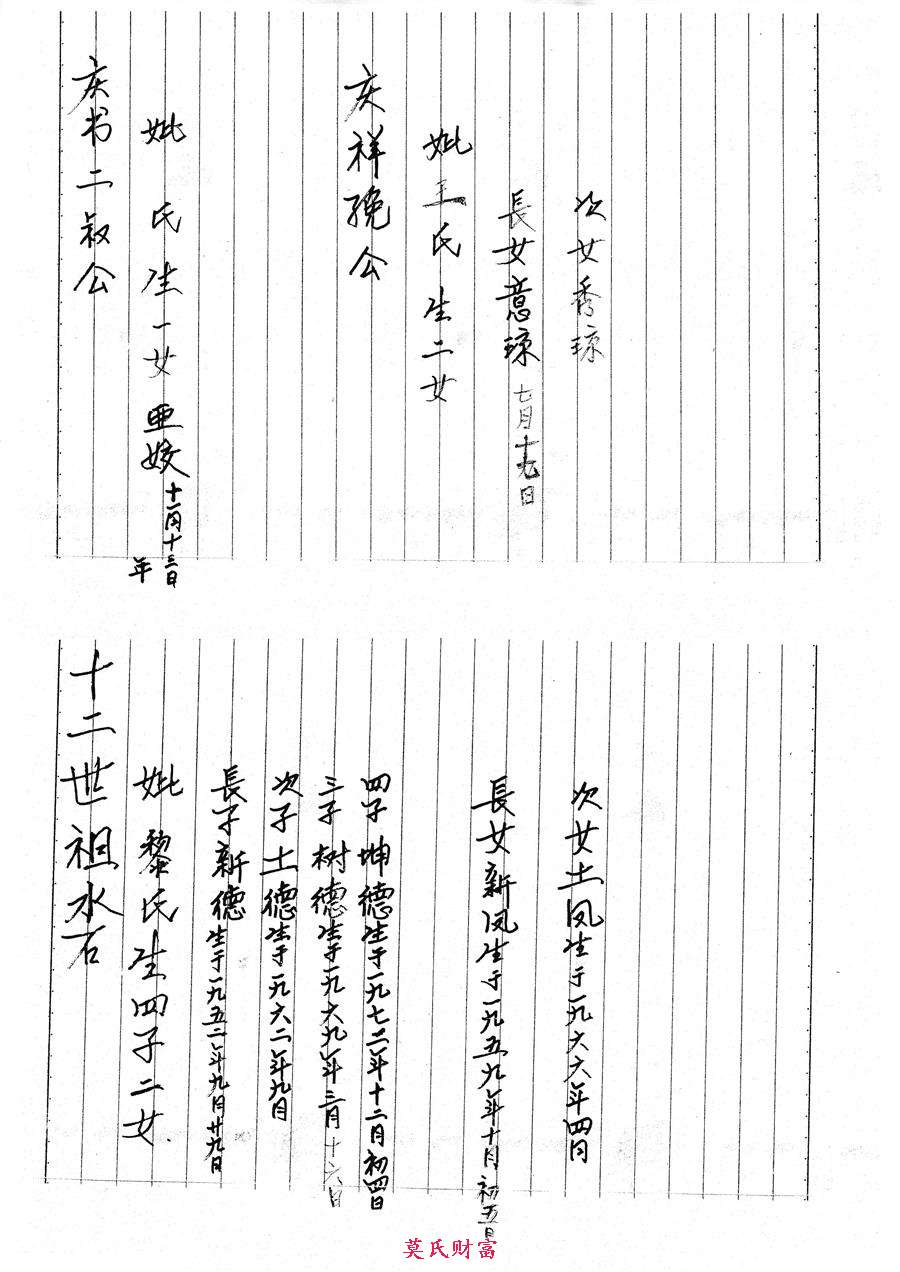 庆书二叔公
妣 氏生一女 亜姣 十一月十三日
年
庆祥晚公
妣王氏生二女
長女意琼 七月十九日
次女秀琼
十二世祖水石
妣黎氏生四子二女
長子新德生于一九五二年九月廿九日
次子土德生于一九六二年九月
三子树德生于一九六九年三月十六日
四子坤德生于一九七二年十二月初四日
長女新凤生于一九五九年十月初五日
次女土凤生于一九六六年四月
莫氏财富